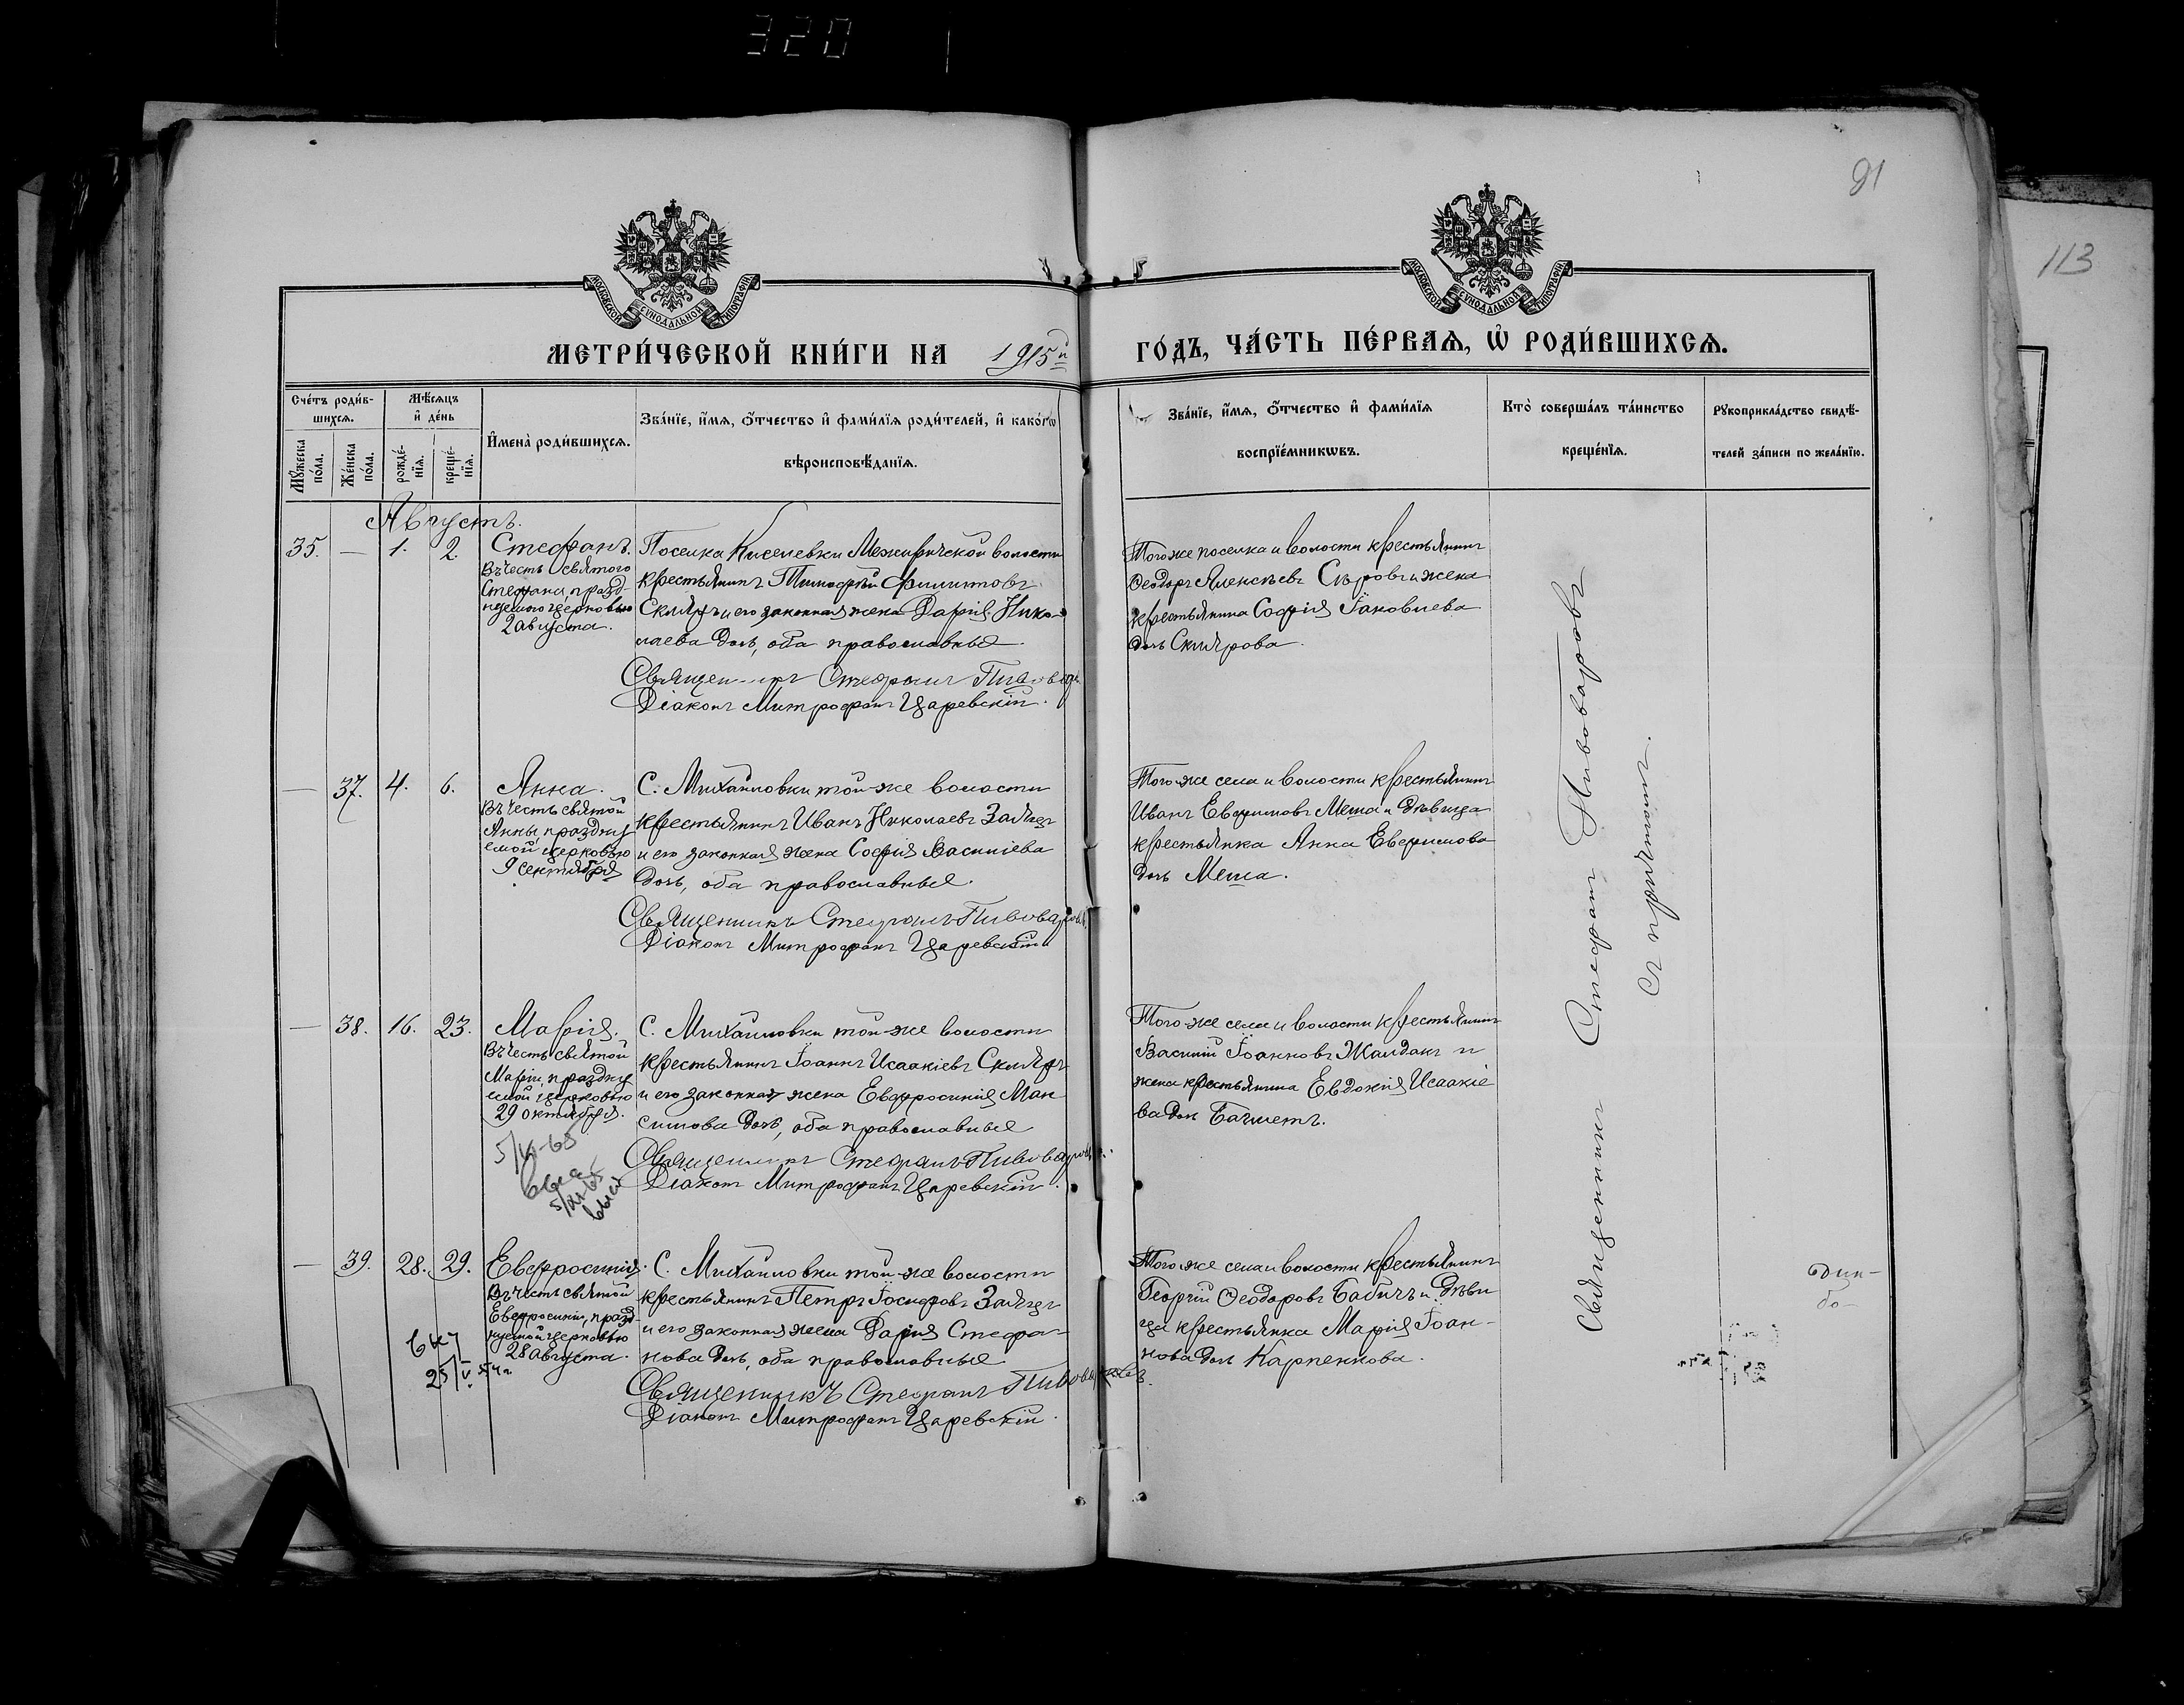 320
91
113
МОСКОВСКОЙ СѴНОДАЛЬНОЙ ТИПОГРАФІИ
МОСКОВСКОЙ СѴНОДАЛЬНОЙ ТИПОГРАФІИ
МЕТРИ́ЧЕСКОЙ КНИ́ГИ НА 1915й
ГО́ДЪ, ЧА́СТЬ ПЕ́РВАѦ, Ѡ҆ РОДИ́ВШИХСѦ.
Сче́тъ роди́в-
шихсѧ.
Мѣ́сѧцъ
и҆ де́нь
Мꙋ́жеска
по́ла.
Же́нска
по́ла.
рожде́-
нїѧ.
креще́-
нїѧ.
И҆мена̀ роди́вшихсѧ.
Зва́нїе, и҆́мѧ, ѻ҆́тчество и҆ фами́лїѧ роди́телей, и҆ како́гѡ
вѣроисповѣ́данїѧ.
Зва́нїе, и҆́мѧ, ѻ҆́тчество и҆ фами́лїѧ
воспрїе́мникѡвъ.
Кто̀ соверша́лъ та́инство
креще́нїѧ.
Рꙋкоприкла́дство свидѣ́-
телей за́писи по жела́нїю.
Августъ.
35. — 1. 2.
Стефанъ.
Въ честь святого
Стефана, празд-
нуемого церковью
2 августа.
Поселка Киселевки Межиричской волости
крестьянинъ Тимофей Филиповъ
Скляръ и его законная жена Дарія Нико-
лаева дочь, оба православные
Священникъ Стефанъ Пивовар
Діаконъ Митрофанъ Царевскій.
Того же поселка и волости крестьянинъ
Феодоръ Алексѣевъ Сѣровъ и жена
крестьянина Софія Іаковлева
дочь Склярова.
— 37. 4. 6.
Анна.
Въ честь святой
Анны, праздну
емой церковью
9 сентября
С. Михайловки той-же волости
крестьянинъ Иванъ Николаевъ Заяцъ
и его законная жена Софія Василіева
дочь, оба православные.
Священникъ Стефанъ Пивоваровъ
Діаконъ Митрофанъ Царевскій
Того-же села и волости крестьянинъ
Иванъ Евфимовъ Меша и дѣвица
крестьянка Анна Евфимова
дочь Меша.
— 38. 16. 23.
Марія.
Въ честь святой
Маріи, праздну
емой церковью
29 октября.
С. Михайловки той-же волости
крестьянинъ Іоаннъ Исаакіевъ Скляръ
и его законная жена Евфросинія Мак
симова дочь, оба православные
Священникъ Стефанъ Пивоваровъ.
Діаконъ Митрофанъ Царевскій.
Того-же села и волости крестьянинъ
Василій Іоанновъ Жалданъ и
жена крестьянина Евдокія Исаакіе
ва дочь Бачметъ.
— 39. 28. 29.
Евфросинія.
Въ честь святой
Евфросиніи, празд-
нуемой церковью
28 августа.
25/V
С. Михайловки той-же волости
крестьянинъ Петръ Іосифовъ Заяцъ
и его законная жена Дарія Стефа-
нова дочь, оба православные
Священникъ Стефанъ Пивоваровъ.
Діаконъ Митрофанъ Царевскій.
Того же села и волости крестьянинъ
Георгій Феодоровъ Бабичъ и дѣви
ца крестьянка Марія Іоан-
нова дочь Карпенкова.
Священникъ Стефанъ Пивоваровъ
съ причтомъ.